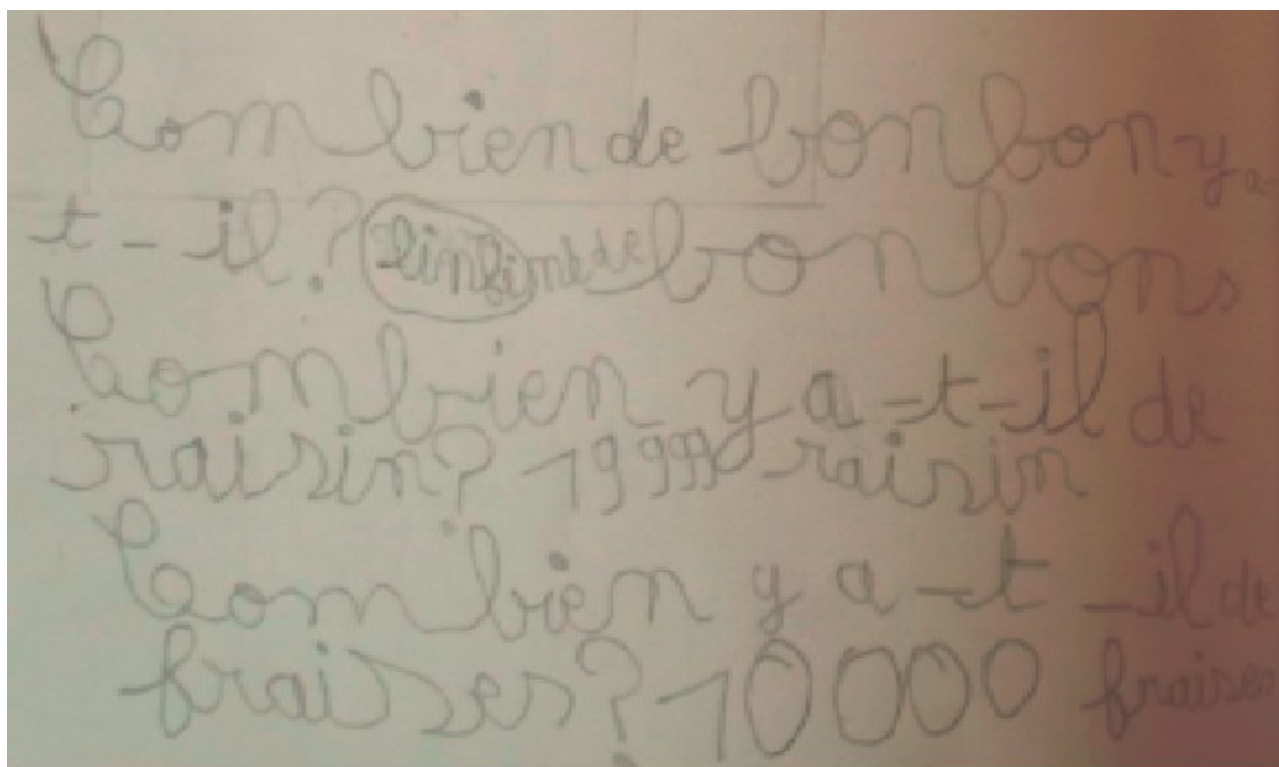 Combien de bonbon y a-
t-il? linfinité de bonbons
Combien y a-t-il de
raisin? 19999 raisin
Combien y a-t-il de
fraises? 10000 fraises